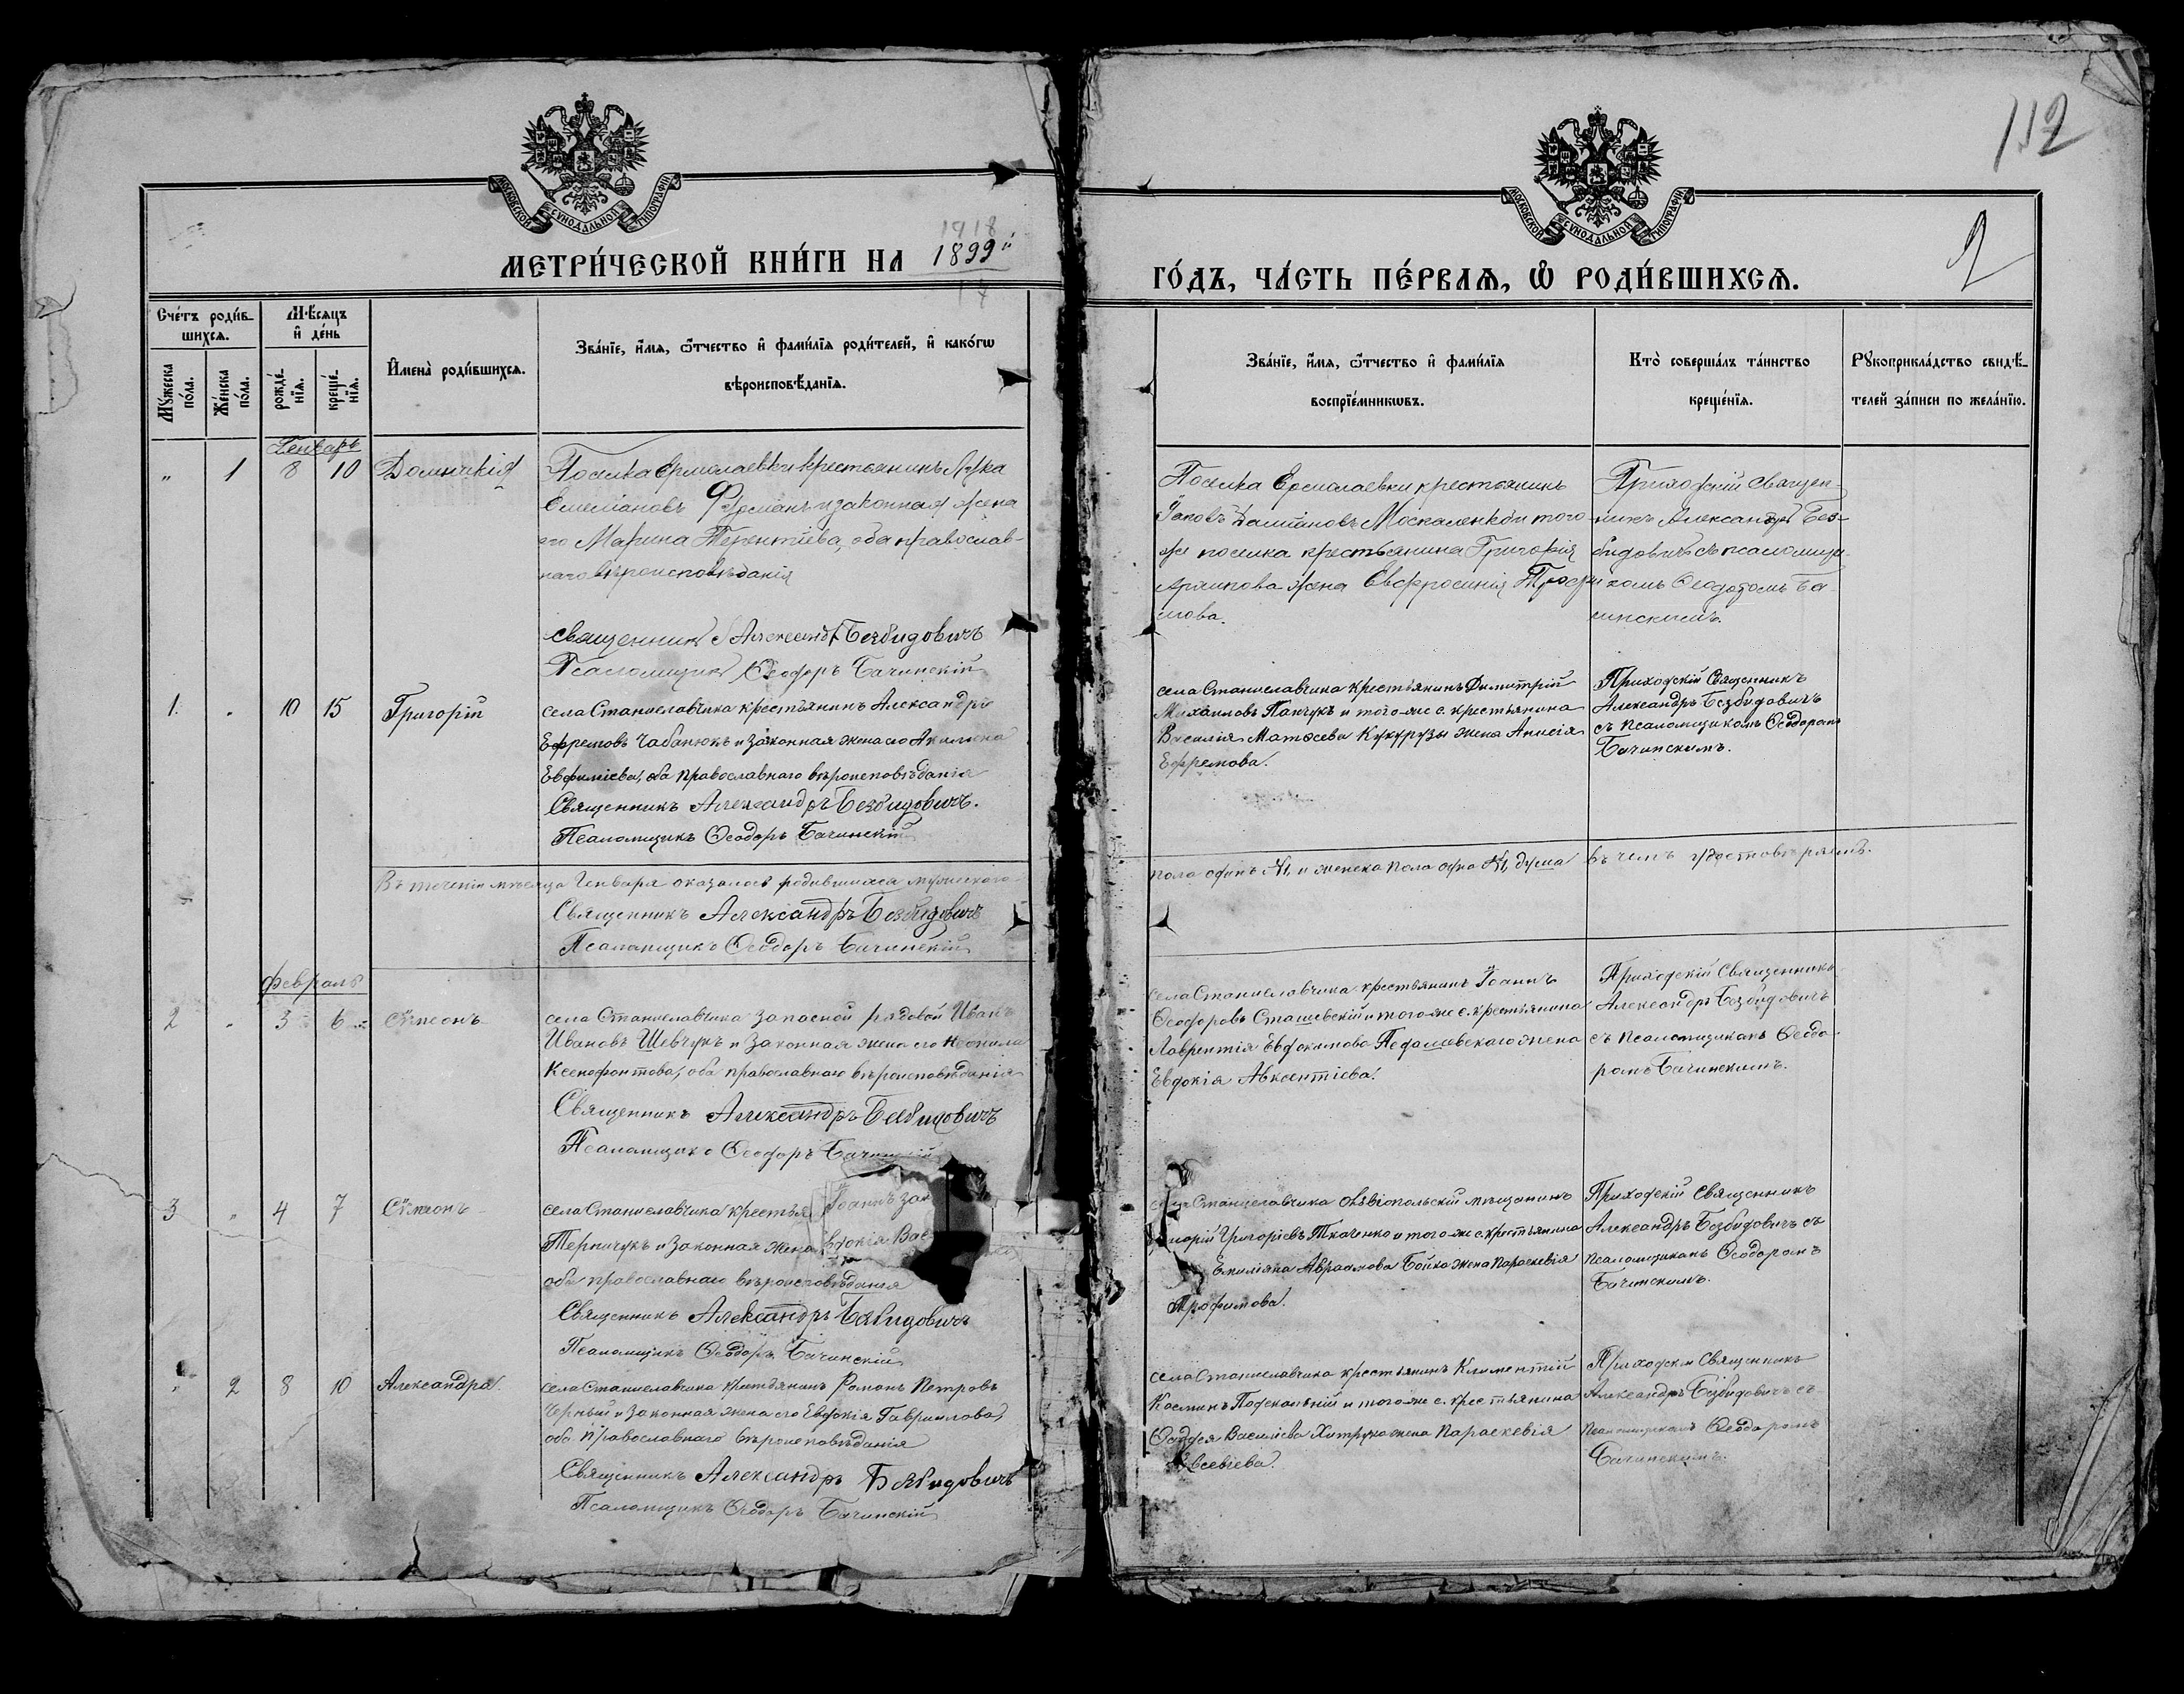 112
МОСКОВСКОЙ СУНОДАЛЬНОЙ ТИПОГРАФІИ
МОСКОВСКОЙ СУНОДАЛЬНОЙ ТИПОГРАФІИ
1918
2
МЕТРИ́ЧЕСКОЙ КНИ́ГИ НА 1899й
ГО́ДЪ, ЧА́СТЬ ПЕ́РВАѦ, Ѡ҆ РОДИ́ВШИХСѦ.
Сче́тъ роди́в-
шихсѧ.
Мѣ́сѧцъ
и҆ де́нь
Мꙋжеска по́ла.
Же́нска по́ла.
рожде́-нїѧ.
креще́-нїѧ.
И҆мена̀ роди́вшихсѧ.
Зва́нїе, и҆́мѧ, ѻ҆́тчество и҆ фами́лїѧ роди́телей, и҆ како́гѡ
вѣроисповѣ́данїѧ.
Зва́нїе, и҆́мѧ, ѻ҆́тчество и҆ фами́лїѧ
воспрїе́мникѡвъ.
Кто̀ соверша́лъ та́инство
креще́нїѧ.
Рꙋкоприкла́дство свидѣ́-
телей за́писи по жела́нїю.
Генварь
" 1 8 10 Домникія
Поселка Ермолаевки крестьянинъ Лука
Емеліановъ Фурманъ и законная жена
его Марина Терентіева, оба православ-
наго вѣроисповѣданія
Священникъ Александръ Безбидовичъ
Псаломщикъ Ѳеодоръ Бачинскій
Поселка Ермолаевки крестьянинъ
Іаковъ Даміановъ Москаленко и того
же поселка крестьянина Григорія
Архипова жена Евфросинія Трофи
мова.
Приходскій Священ-
никъ Александръ Без-
бидовичъ съ псаломщи-
комъ Ѳеодоромъ Ба-
чинскимъ.
1. " 10 15 Григорій
села Станиславчика крестьянинъ Александръ
Ефремовъ Чабанюкъ и законная жена его Акилина
Евфиміева, оба православнаго вѣроисповѣданія
Священникъ Александръ Безбидовичъ.
Псаломщикъ Ѳеодоръ Бачинскій
села Станиславчика крестьянинъ Димитрій
Михаиловъ Панчукъ и того-же с. крестьянина
Василія Матѳеева Кукурузы жена Анисія
Ефремова.
Приходскій Священникъ
Александръ Безбидовичъ
съ псаломщикомъ Ѳеодоромъ
Бачинскимъ.
Въ теченіи мѣсяца Генваря оказалось родившихся мужескаго
пола одинъ №1, и женска пола одна №1, душа въ чемъ удостовѣряемъ.
Священникъ Александръ Безбидовичъ
Псаломщикъ Ѳеодоръ Бачинскій
Февраль
2 " 3 6 Сѵмеонъ
села Станиславчика запасной рядовой Иванъ
Ивановъ Шевчукъ и законная жена его Неонила
Ксенофонтова, оба православнаго вѣроисповѣданія
Священникъ Александръ Безбидовичъ
Псаломщикъ Ѳеодоръ Бачинскій
села Станиславчика крестьянинъ Іоаннъ
Ѳеодоровъ Сташевскій и того-же с. крестьянина
Лаврентія Евдокимова жена
Евдокія Авксентіева.
Приходскій Священникъ
Александръ Безбидовичъ
съ псаломщикомъ Ѳеодо-
ромъ Бачинскимъ.
3 " 4 7 Сѵмеонъ
села Станиславчика крестья Іоаннъ
Терпичукъ и законная жена Евдокія
оба православнаго вѣроисповѣданія
Священникъ Александръ Безбидовичъ
Псаломщикъ Ѳеодоръ Бачинскій
Станиславчика мѣщанинъ
Григоріевъ Ткаченко и того-же с. крестьянина
Емиліяна Авраамова Бойко жена Параскевія
Трофимова.
Приходскій Священникъ
Александръ Безбидовичъ съ
псаломщикомъ Ѳеодоромъ
Бачинскимъ.
" 2 8 10 Александра.
села Станиславчика крестьянинъ Романъ Петровъ
Черный и законная жена его Евдокія Гавриилова,
оба православнаго вѣроисповѣданія
Священникъ Александръ Безбидовичъ
Псаломщикъ Ѳеодоръ Бачинскій
села Станиславчика крестьянинъ Климентій
Косминъ и того-же с. крестьянина
Василіева жена Параскевія
Евсевіева.
Приходскій Священникъ
Александръ Безбидовичъ съ
псаломщикомъ Ѳеодоромъ
Бачинскимъ.